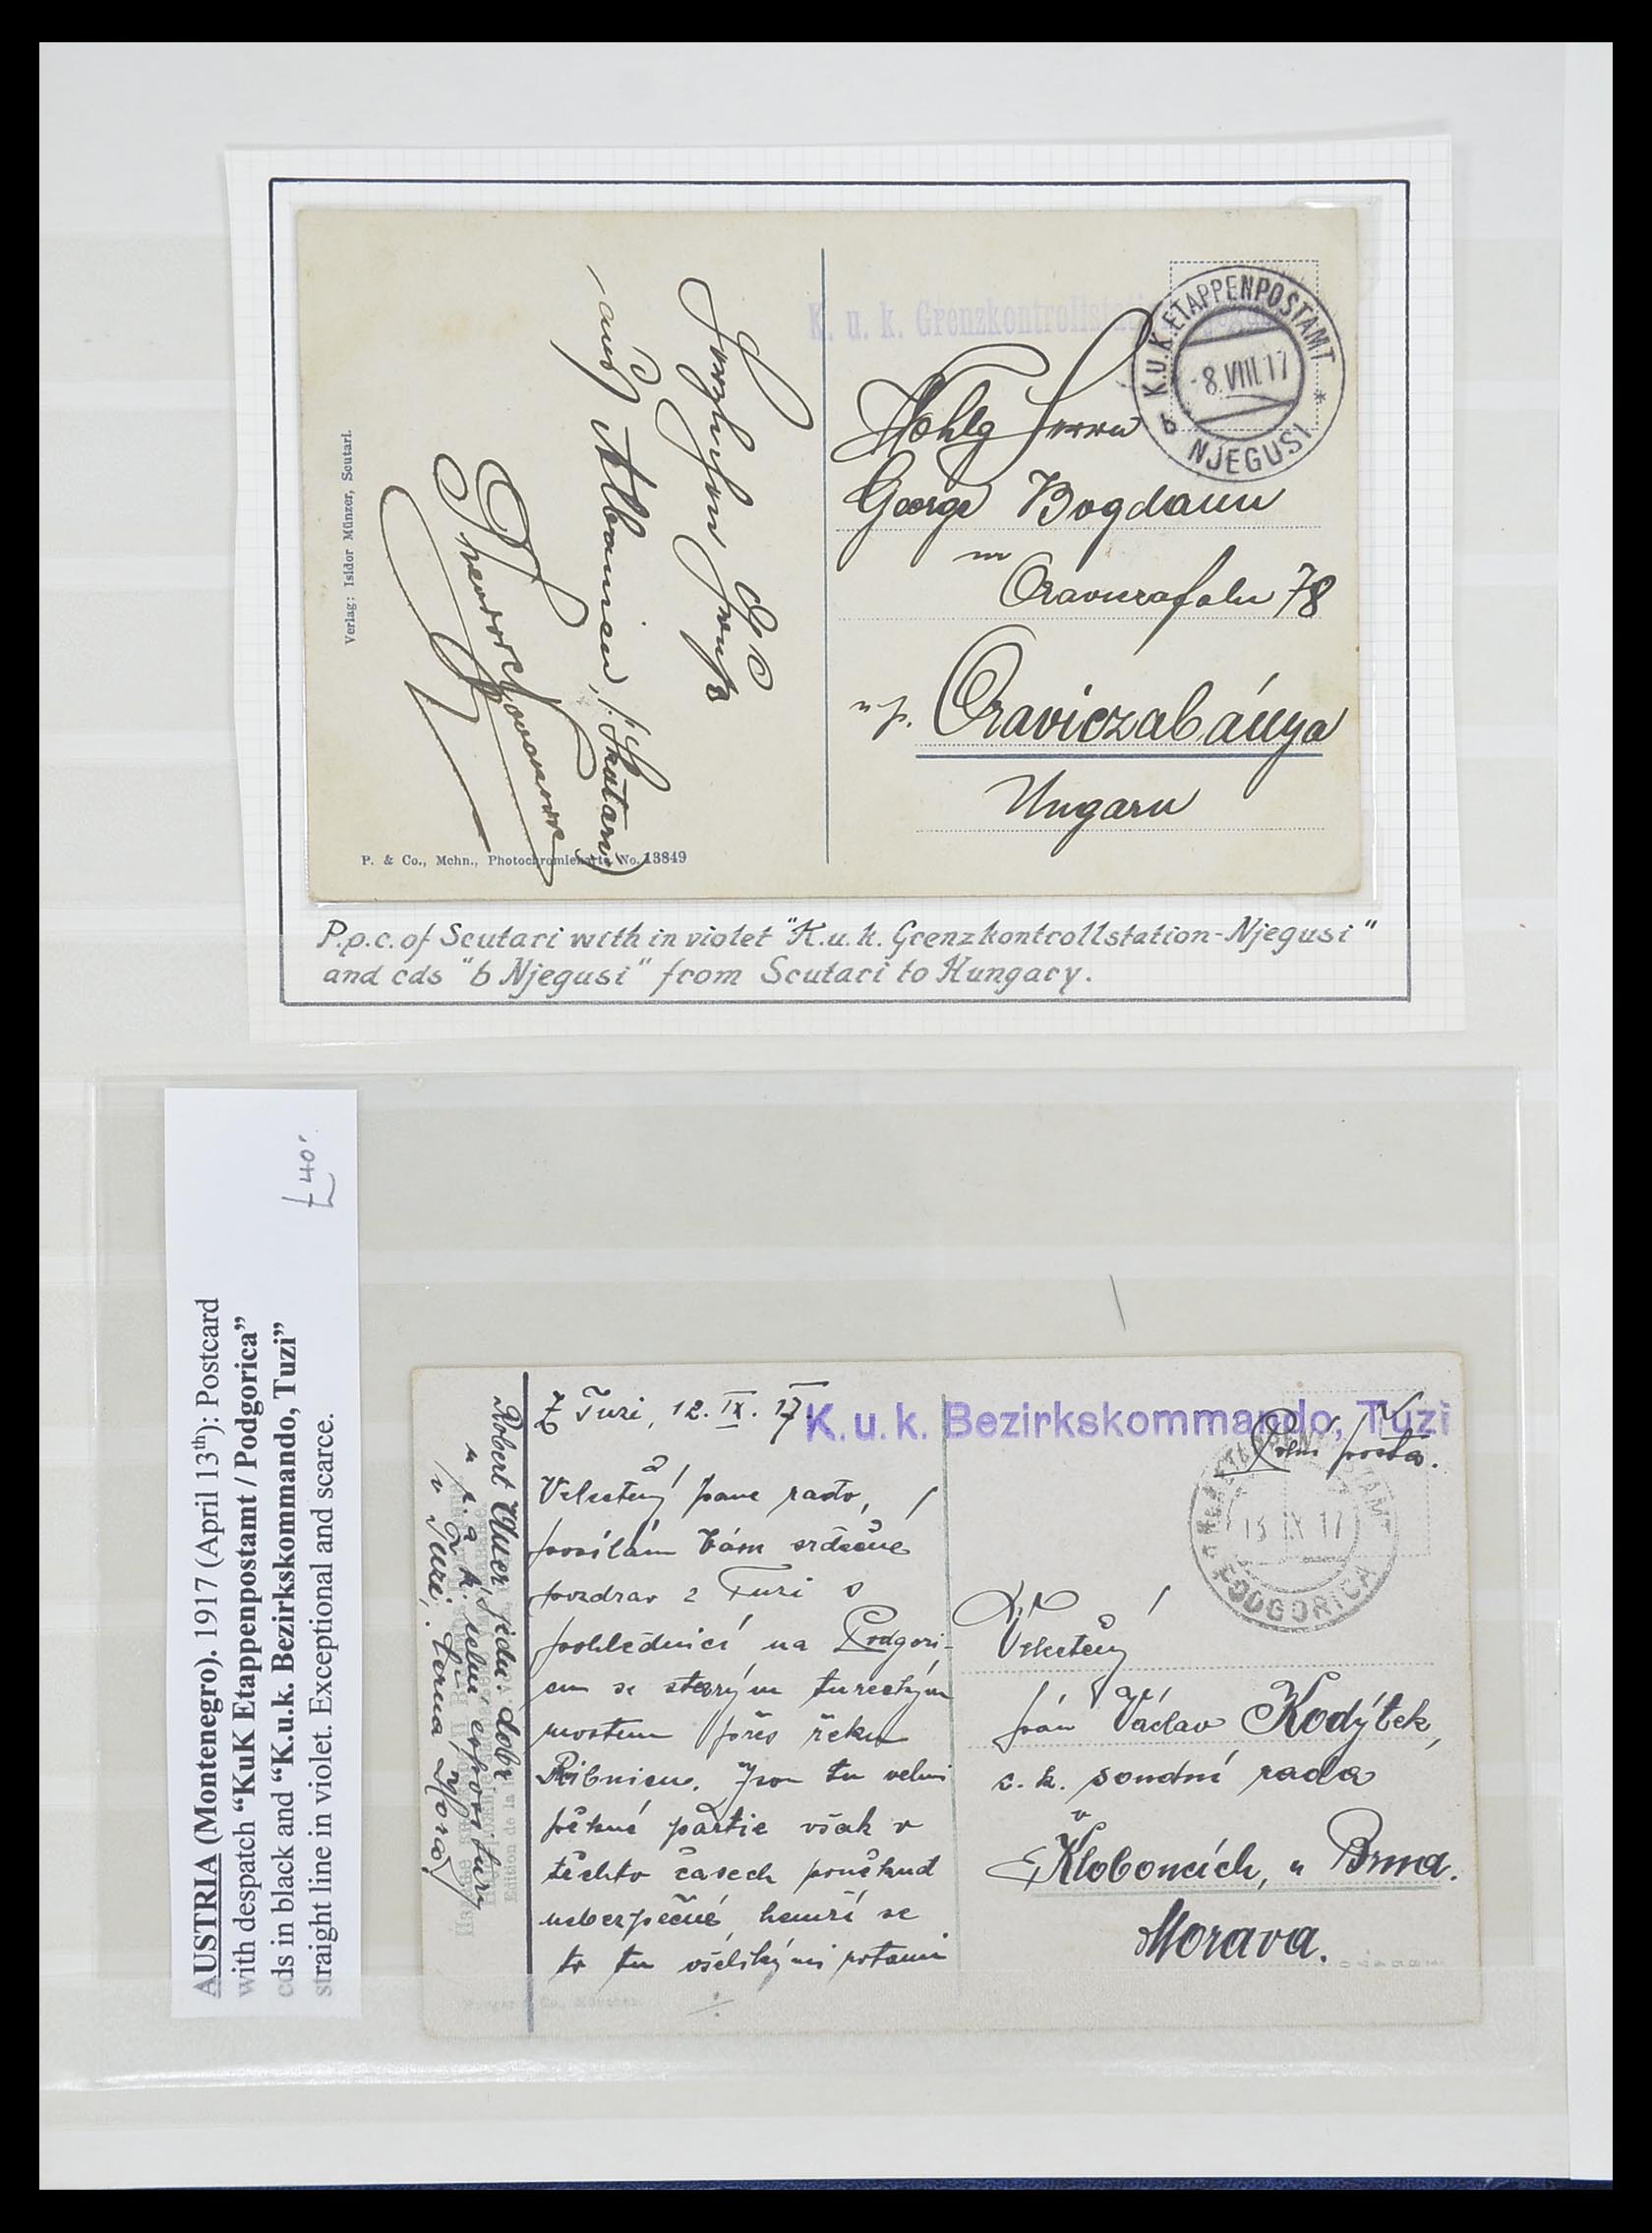 K. u. k. Grenzkontrollstation
K.U.K. ETAPPENPOSTAMT
-8.VIII.17
b NJEGUSI *
Wohlg Herrn
George Bogdann
in
Oraviczafalu 78
u p. Oraviczabánya
Ungarn
Herzlichen Gruß
aus Albanien, (Skutari)
Verlag: Isidor Münzer, Scutari.
P. & Co., Mchn., Photochromiekarte No. 13849
P.p.c. of Scutari with in violet "K.u.k. Grenzkontrollstation-Njegusi"
and cds "b Njegusi" from Scutari to Hungary.
£40.
AUSTRIA (Montenegro). 1917 (April 13th): Postcard
with despatch “KuK Etappenpostamt / Podgorica”
cds in black and “K.u.k. Bezirkskommando, Tuzi”
straight line in violet. Exceptional and scarce.
Z Tuzi, 12. IX. 17.
K. u. k. Bezirkskommando, Tuzi
Polní pošta.
13 IX 17
PODGORICA
Velectěný pane rado,
posílám Vám srdečné
pozdrav z Tuzi s
pohlednicí na Podgori-
cu se starým tureckým
mostem přes řeku
Ribnicu. Jsou tu velmi
pěkné partie však v
těchto časech poněkud
nebezpečné, hemží se
to tu všelikými potami
./.
Velectěný
pán Václav Kodýtek,
c. k. soudní rada
v
Kloboucích, u Brna.
Morava.
Robert
v Tuzi, Černá Hora
Edition de la